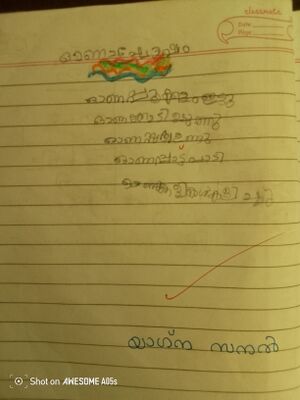 classmate
Date
Page
ഓണാഘോഷം
ഓണപ്പൂക്കളം ഇട്ടു
ഓണക്കോടി ഉടുത്തു
ഓണസദ്യ ഉണ്ടു
ഓണപ്പാട്ട് പാടി
യാഗ്ന സനൽ
Shot on AWESOME A05s